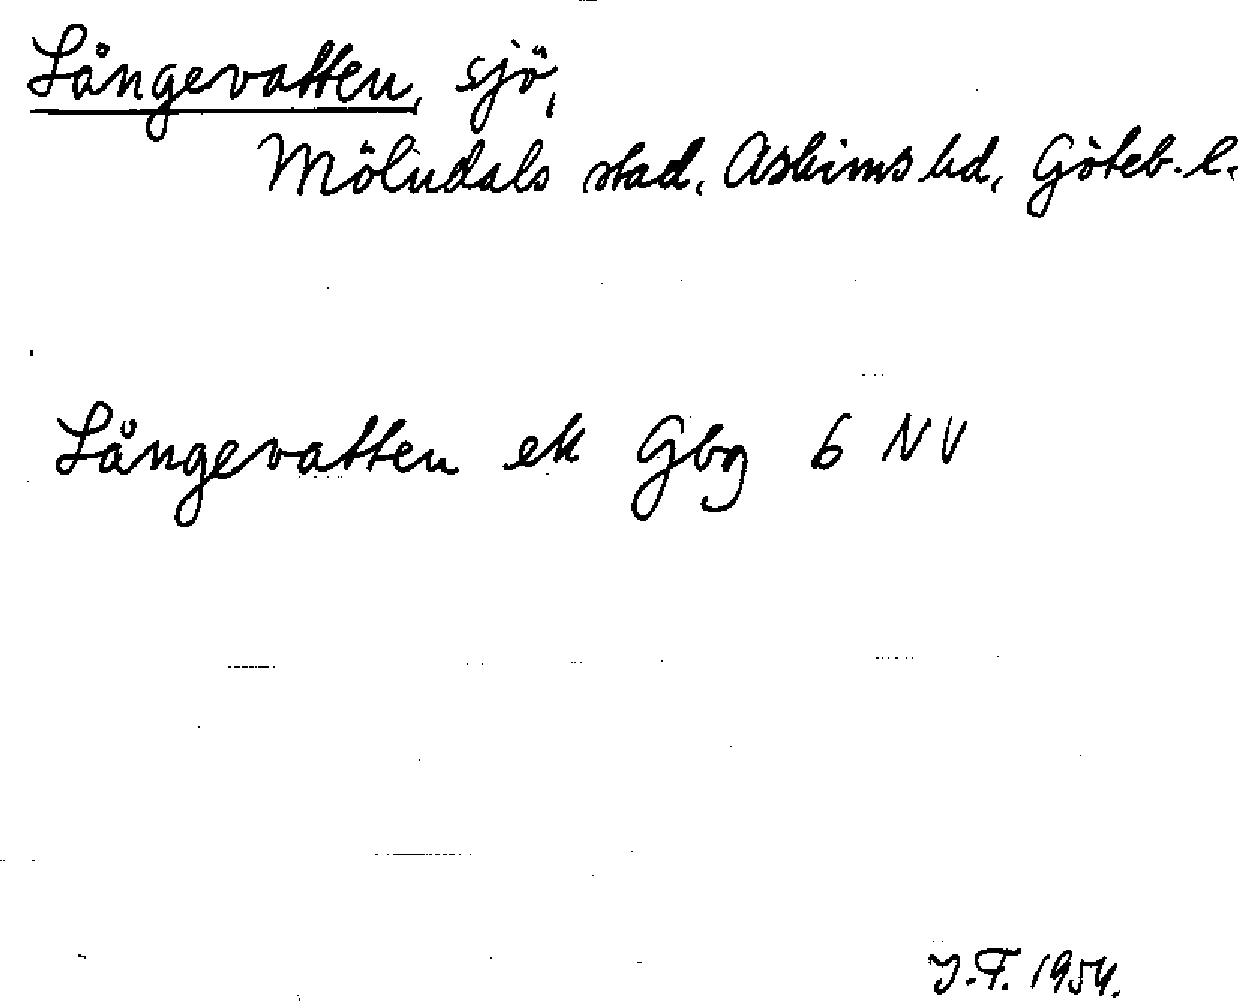 Långevatten, sjö,
Mölndals stad, Askims hd, Göteb. l.
Långevatten ek Gbg 6 NV
J.F. 1954.